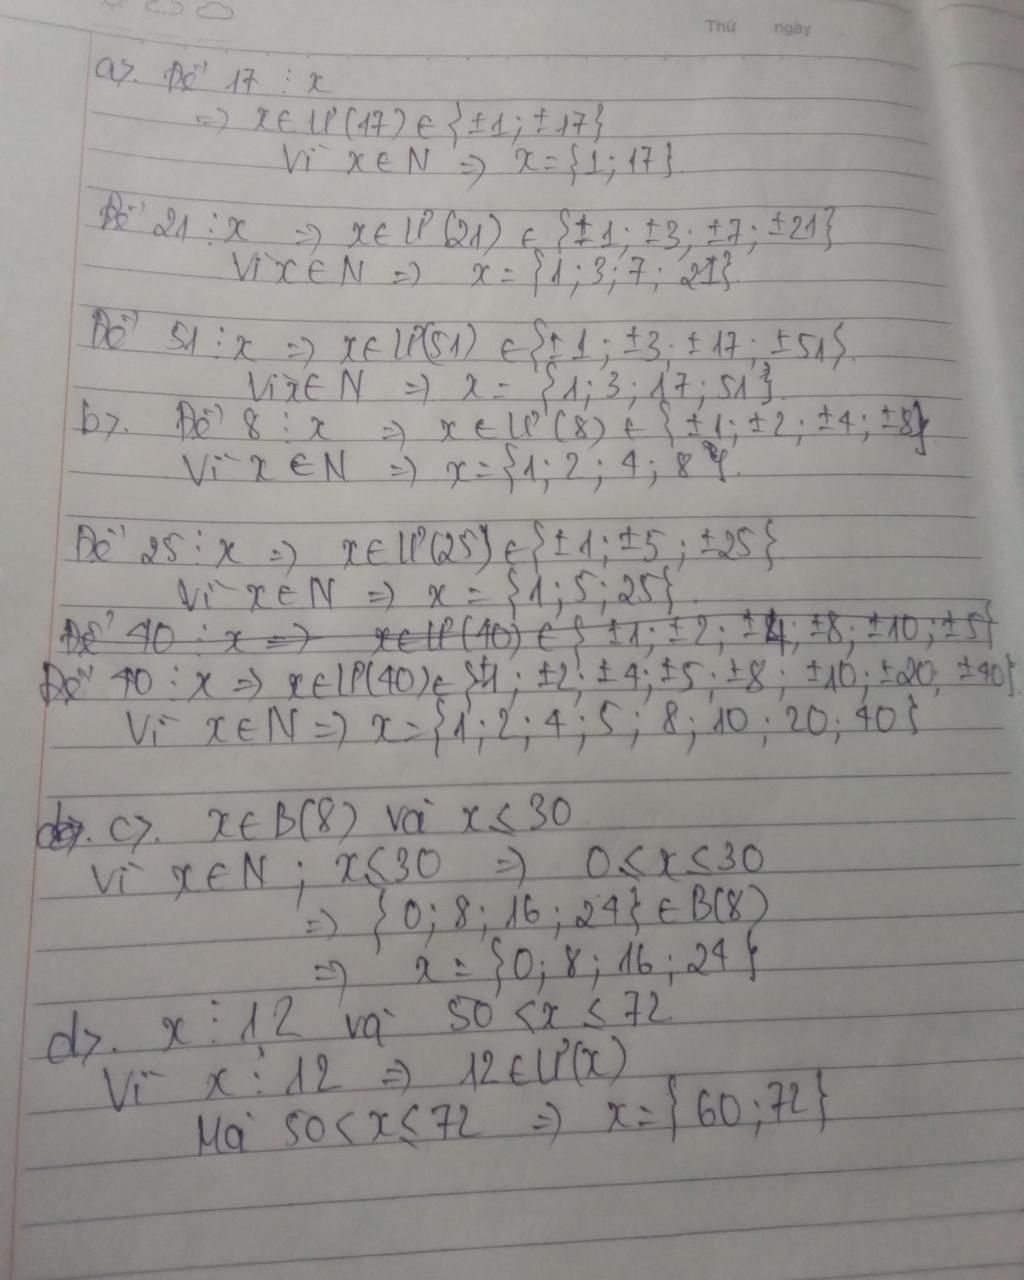 Thứ ngày
a>. Để 17 ⋮ x
=> x ∈ Ư(17) ∈ {±1; ±17}
Vì x ∈ N => x = {1; 17}
Để 21 ⋮ x => x ∈ Ư(21) ∈ {±1; ±3; ±7; ±21}
Vì x ∈ N => x = {1; 3; 7; 21}
Để 51 ⋮ x => x ∈ Ư(51) ∈ {±1; ±3; ±17; ±51}
Vì x ∈ N => x = {1; 3; 17; 51}
b>. Để 8 ⋮ x => x ∈ Ư(8) ∈ {±1; ±2; ±4; ±8}
Vì x ∈ N => x = {1; 2; 4; 8}.
Để 25 ⋮ x => x ∈ Ư(25) ∈ {±1; ±5; ±25}
Vì x ∈ N => x = {1; 5; 25}
Để 40 ⋮ x => x ∈ Ư(40) ∈ {±1; ±2; ±4; ±8; ±10; ±5}
Để 40 ⋮ x => x ∈ Ư(40) ∈ {±1; ±2; ±4; ±5; ±8; ±10; ±20; ±40}
Vì x ∈ N => x = {1; 2; 4; 5; 8; 10; 20; 40}
c>. x ∈ B(8) và x ≤ 30
Vì x ∈ N; x ≤ 30 => 0 ≤ x ≤ 30
=> {0; 8; 16; 24} ∈ B(8)
=> x = {0; 8; 16; 24}
d>. x ⋮ 12 và 50 < x ≤ 72
Vì x ⋮ 12 => 12 ∈ Ư(x)
Mà 50 < x ≤ 72 => x = {60; 72}